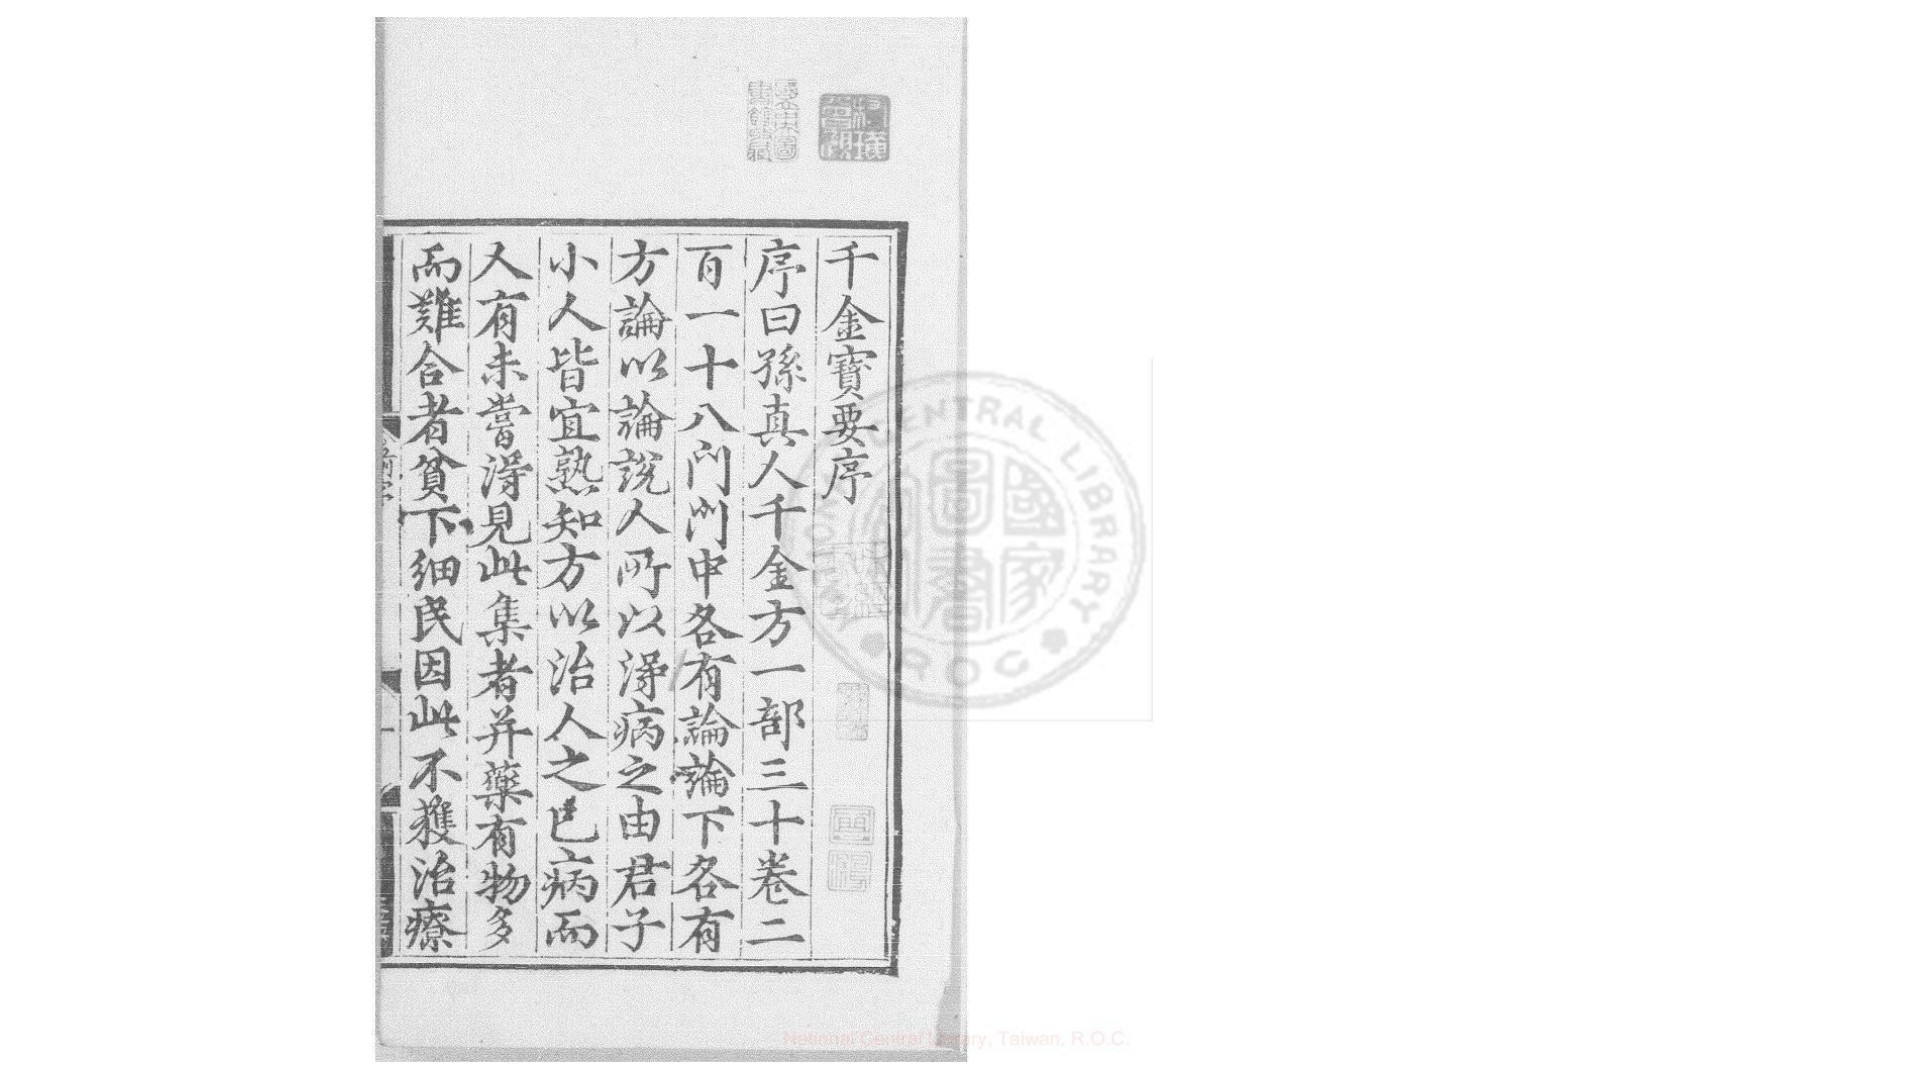 千金寶要序
序曰孫真人千金方一部三十卷二
百一十八門門中各有論論下各有
方論以論說人所以得病之由君子
小人皆宜熟知方以治人之已病而
人有未嘗得見此集者并藥有物多
而難合者貧下細民因此不獲治療
NATIONAL CENTRAL LIBRARY
R.O.C
國家圖書館
國立中央圖書館藏
National Central Library, Taiwan, R.O.C.